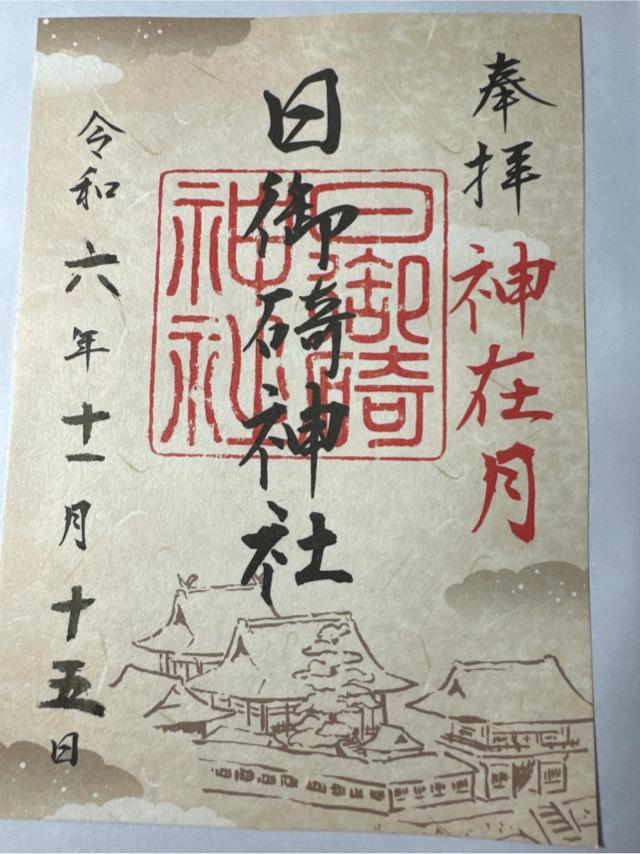 奉拝
神在月
日御碕神社
日御碕
神社
令和六年十一月十五日